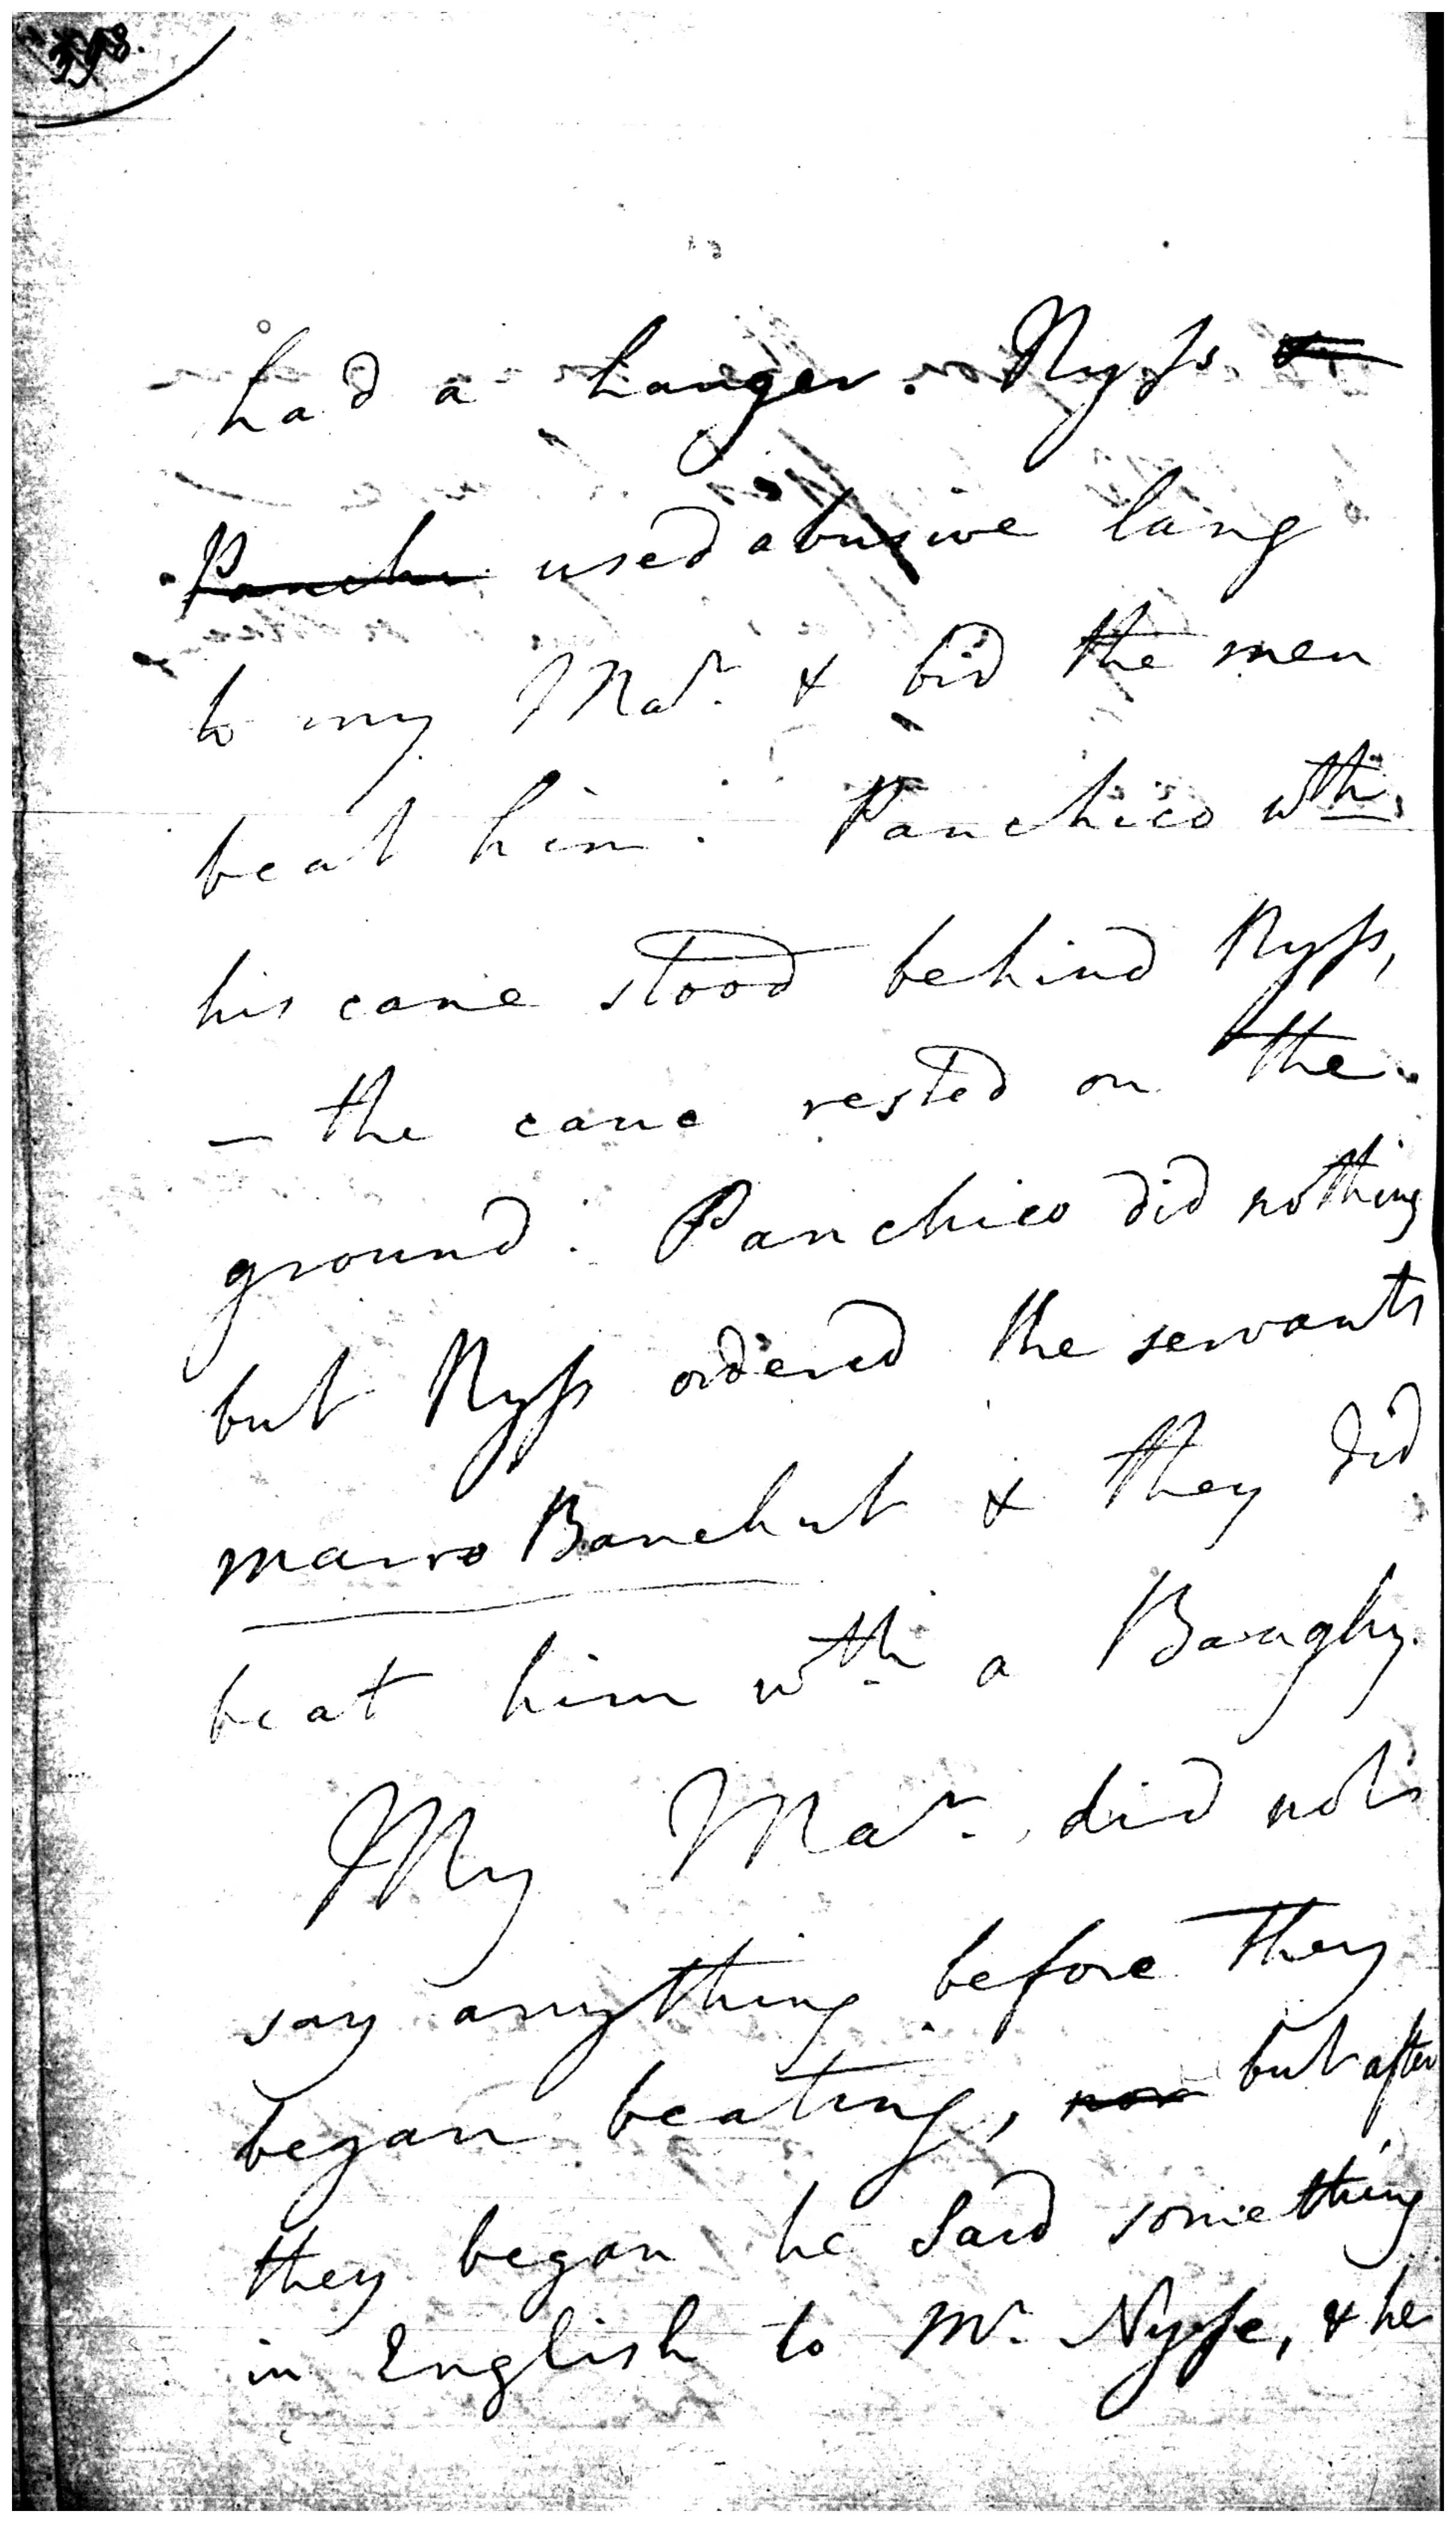 398.
had a hanger. Nyss &
Panchi used abusive lang
to my Mar. & bid the men
beat him. Panchico wth.
his cane stood behind Nyss,
— the cane rested on the
ground. Panchico did nothing
but Nyss ordered the servants
marro Banchut & they did
beat him wth a Baughy.
My Mar. did not
say anything before they
began beating, nor but after
they began he said something
in English to Mr. Nysse, & he